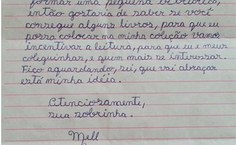 formar uma pequena biblioteca,
então gostaria de saber se você
consegue alguns livros, para que eu
possa colocar na minha coleção vamos
incentivar a leitura, para que eu e meus
coleguinhas, e quem mais se interessar.
Fico aguardando, sei, que vai abraçar
esta minha idéia.
Atenciosamente,
sua sobrinha.
Mell